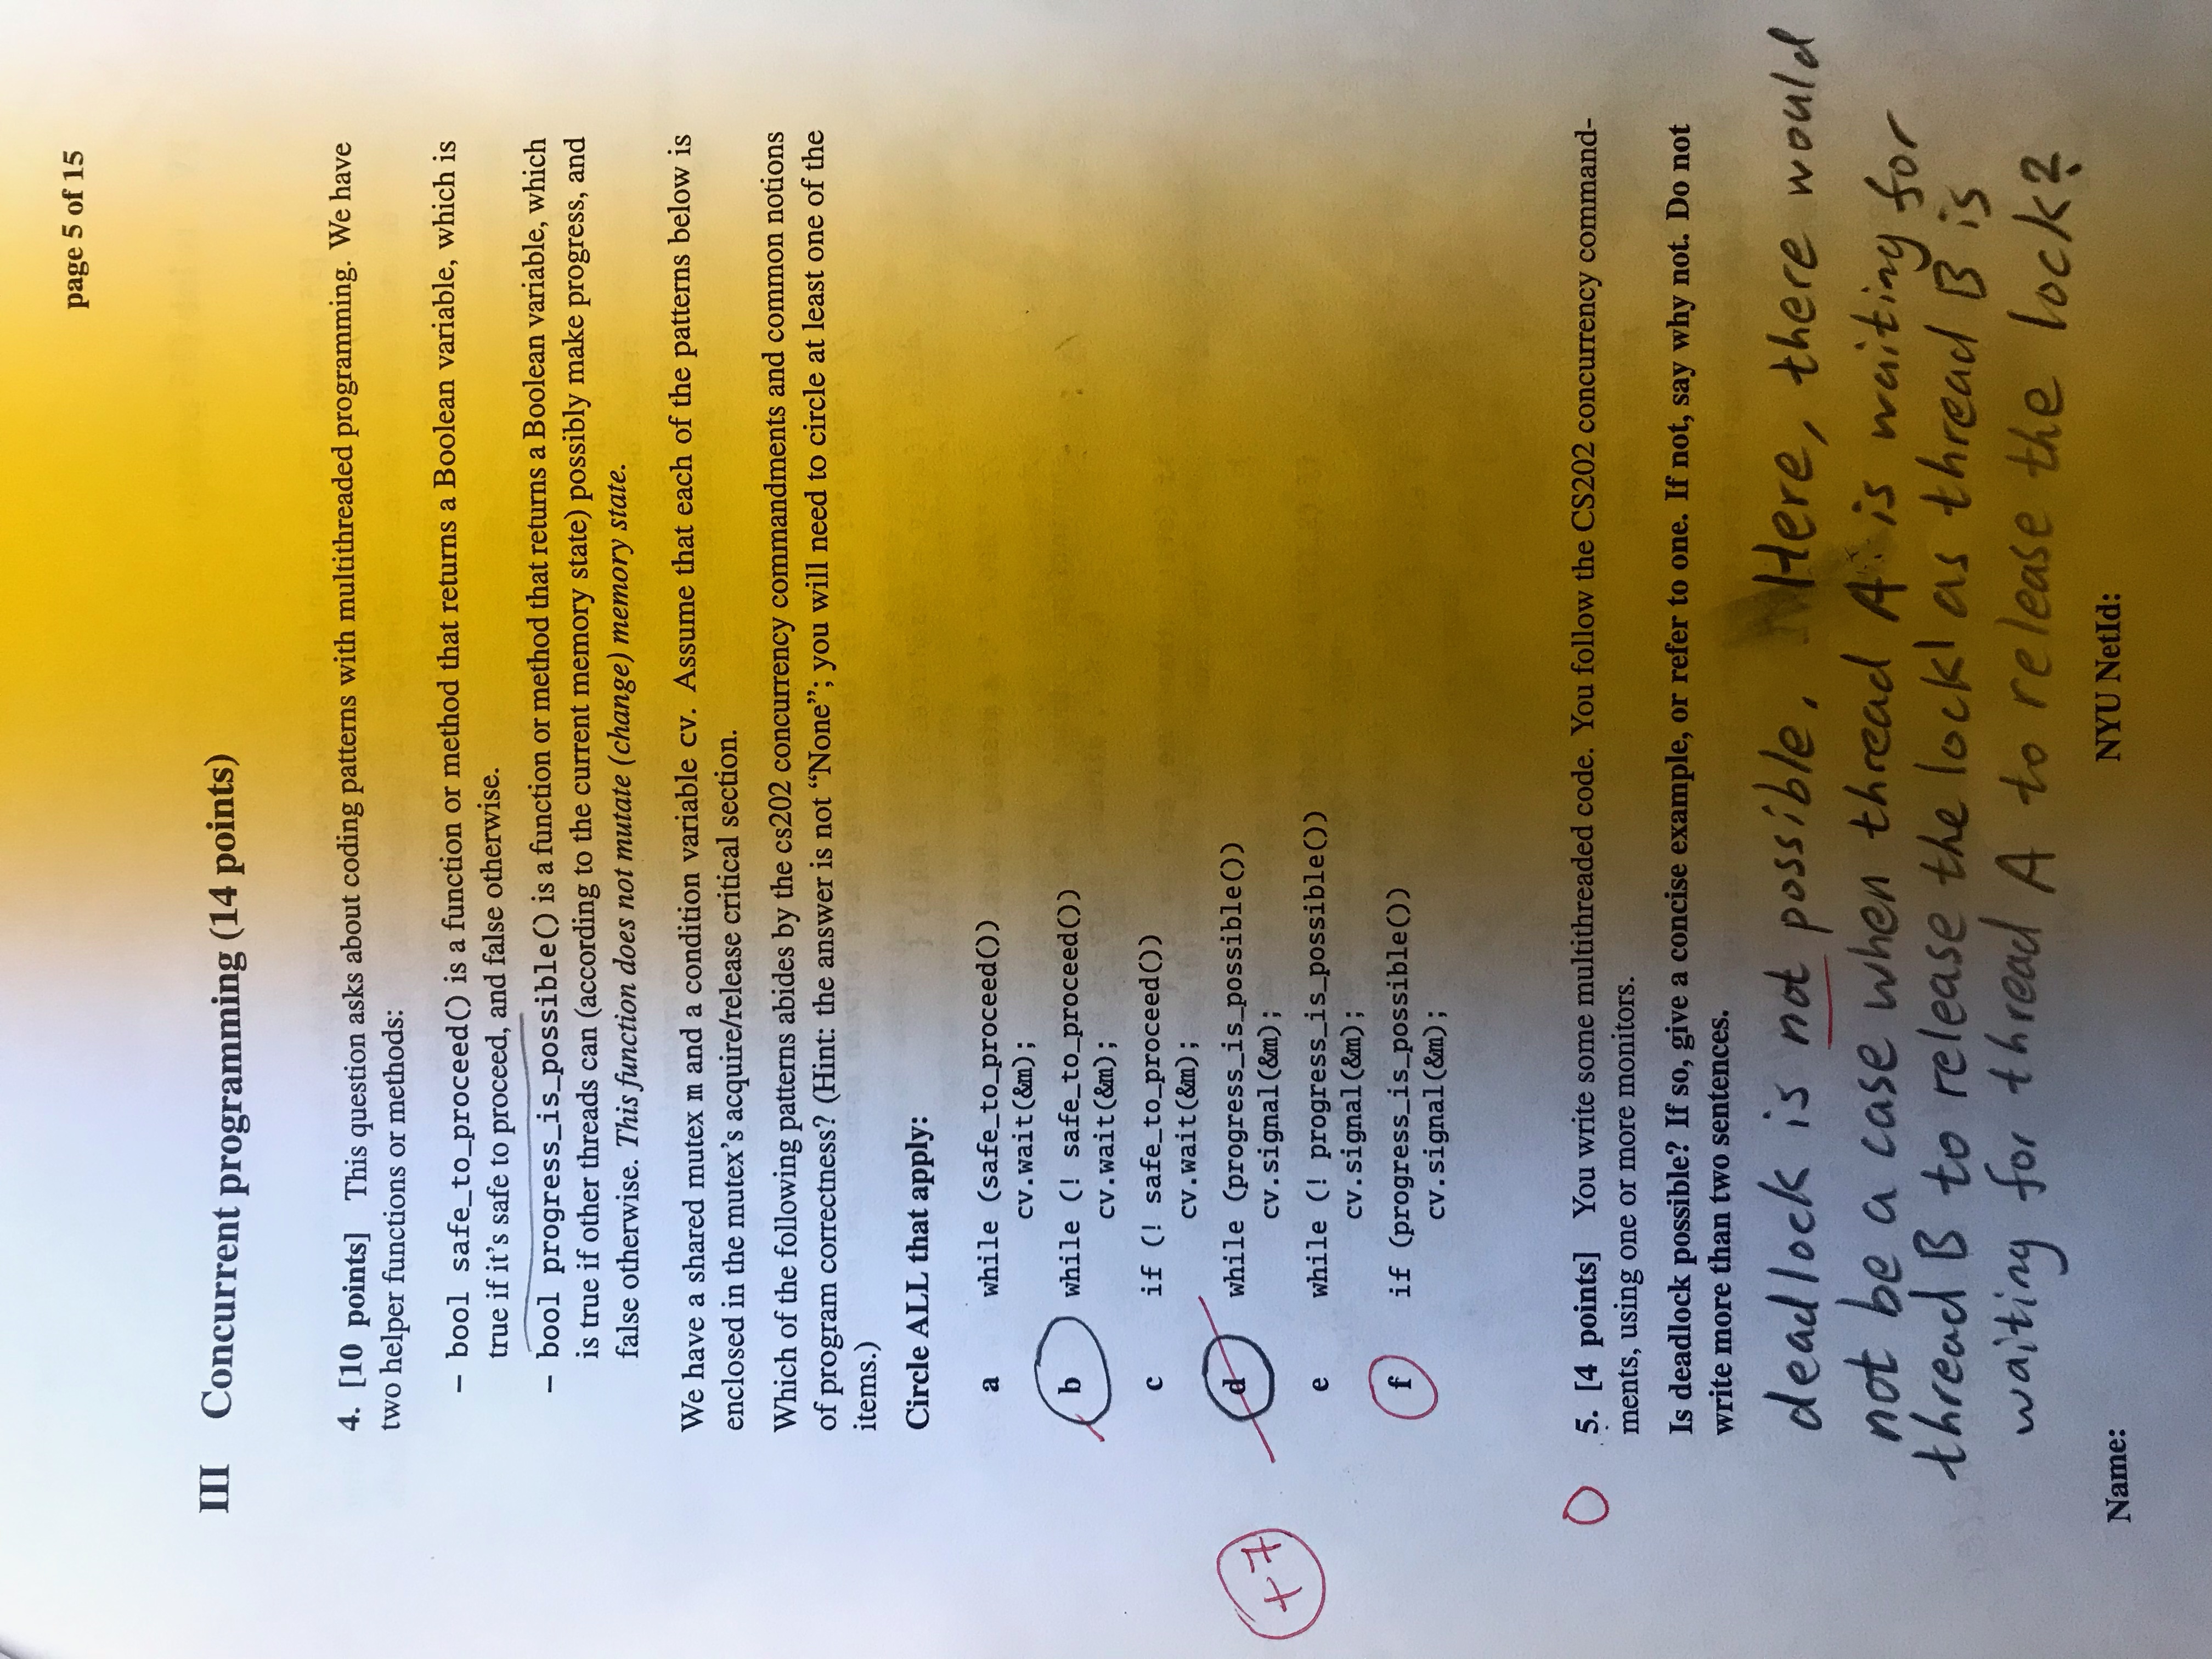 page 5 of 15
III Concurrent programming (14 points)
4. [10 points] This question asks about coding patterns with multithreaded programming. We have
two helper functions or methods:
– bool safe_to_proceed() is a function or method that returns a Boolean variable, which is
true if it's safe to proceed, and false otherwise.
– bool progress_is_possible() is a function or method that returns a Boolean variable, which
is true if other threads can (according to the current memory state) possibly make progress, and
false otherwise. This function does not mutate (change) memory state.
We have a shared mutex m and a condition variable cv. Assume that each of the patterns below is
enclosed in the mutex's acquire/release critical section.
Which of the following patterns abides by the cs202 concurrency commandments and common notions
of program correctness? (Hint: the answer is not “None”; you will need to circle at least one of the
items.)
Circle ALL that apply:
a while (safe_to_proceed())
cv.wait(&m);
b while (! safe_to_proceed())
cv.wait(&m);
c if (! safe_to_proceed())
cv.wait(&m);
d while (progress_is_possible())
+7
cv.signal(&m);
e while (! progress_is_possible())
cv.signal(&m);
f if (progress_is_possible())
cv.signal(&m);
0 5. [4 points] You write some multithreaded code. You follow the CS202 concurrency command-
ments, using one or more monitors.
Is deadlock possible? If so, give a concise example, or refer to one. If not, say why not. Do not
write more than two sentences.
deadlock is not possible. Here, there would
not be a case when thread A is waiting for
thread B to release the lock as thread B is
waiting for thread A to release the lock?
Name: NYU NetId: